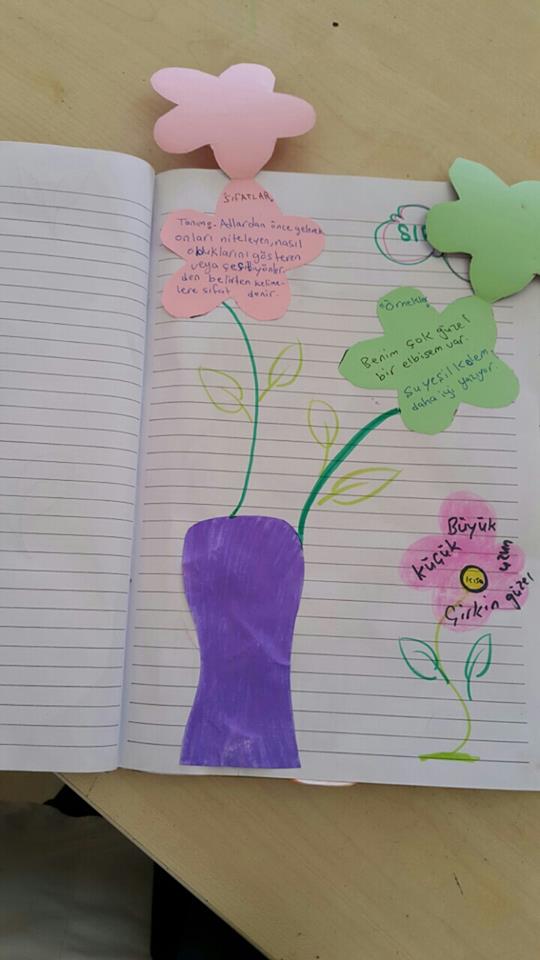 SIFATLAR
Tanımı- Adlardan önce gelerek
onları niteleyen, nasıl
olduklarını gösteren
veya çeşitli yönler-
den belirten kelime-
lere sıfat denir.
SIF
Örnekler
Benim çok güzel
bir elbisem var.
Şu yeşil kalem
daha iyi yazıyor.
Büyük
küçük
uzun
kısa
Çirkin güzel